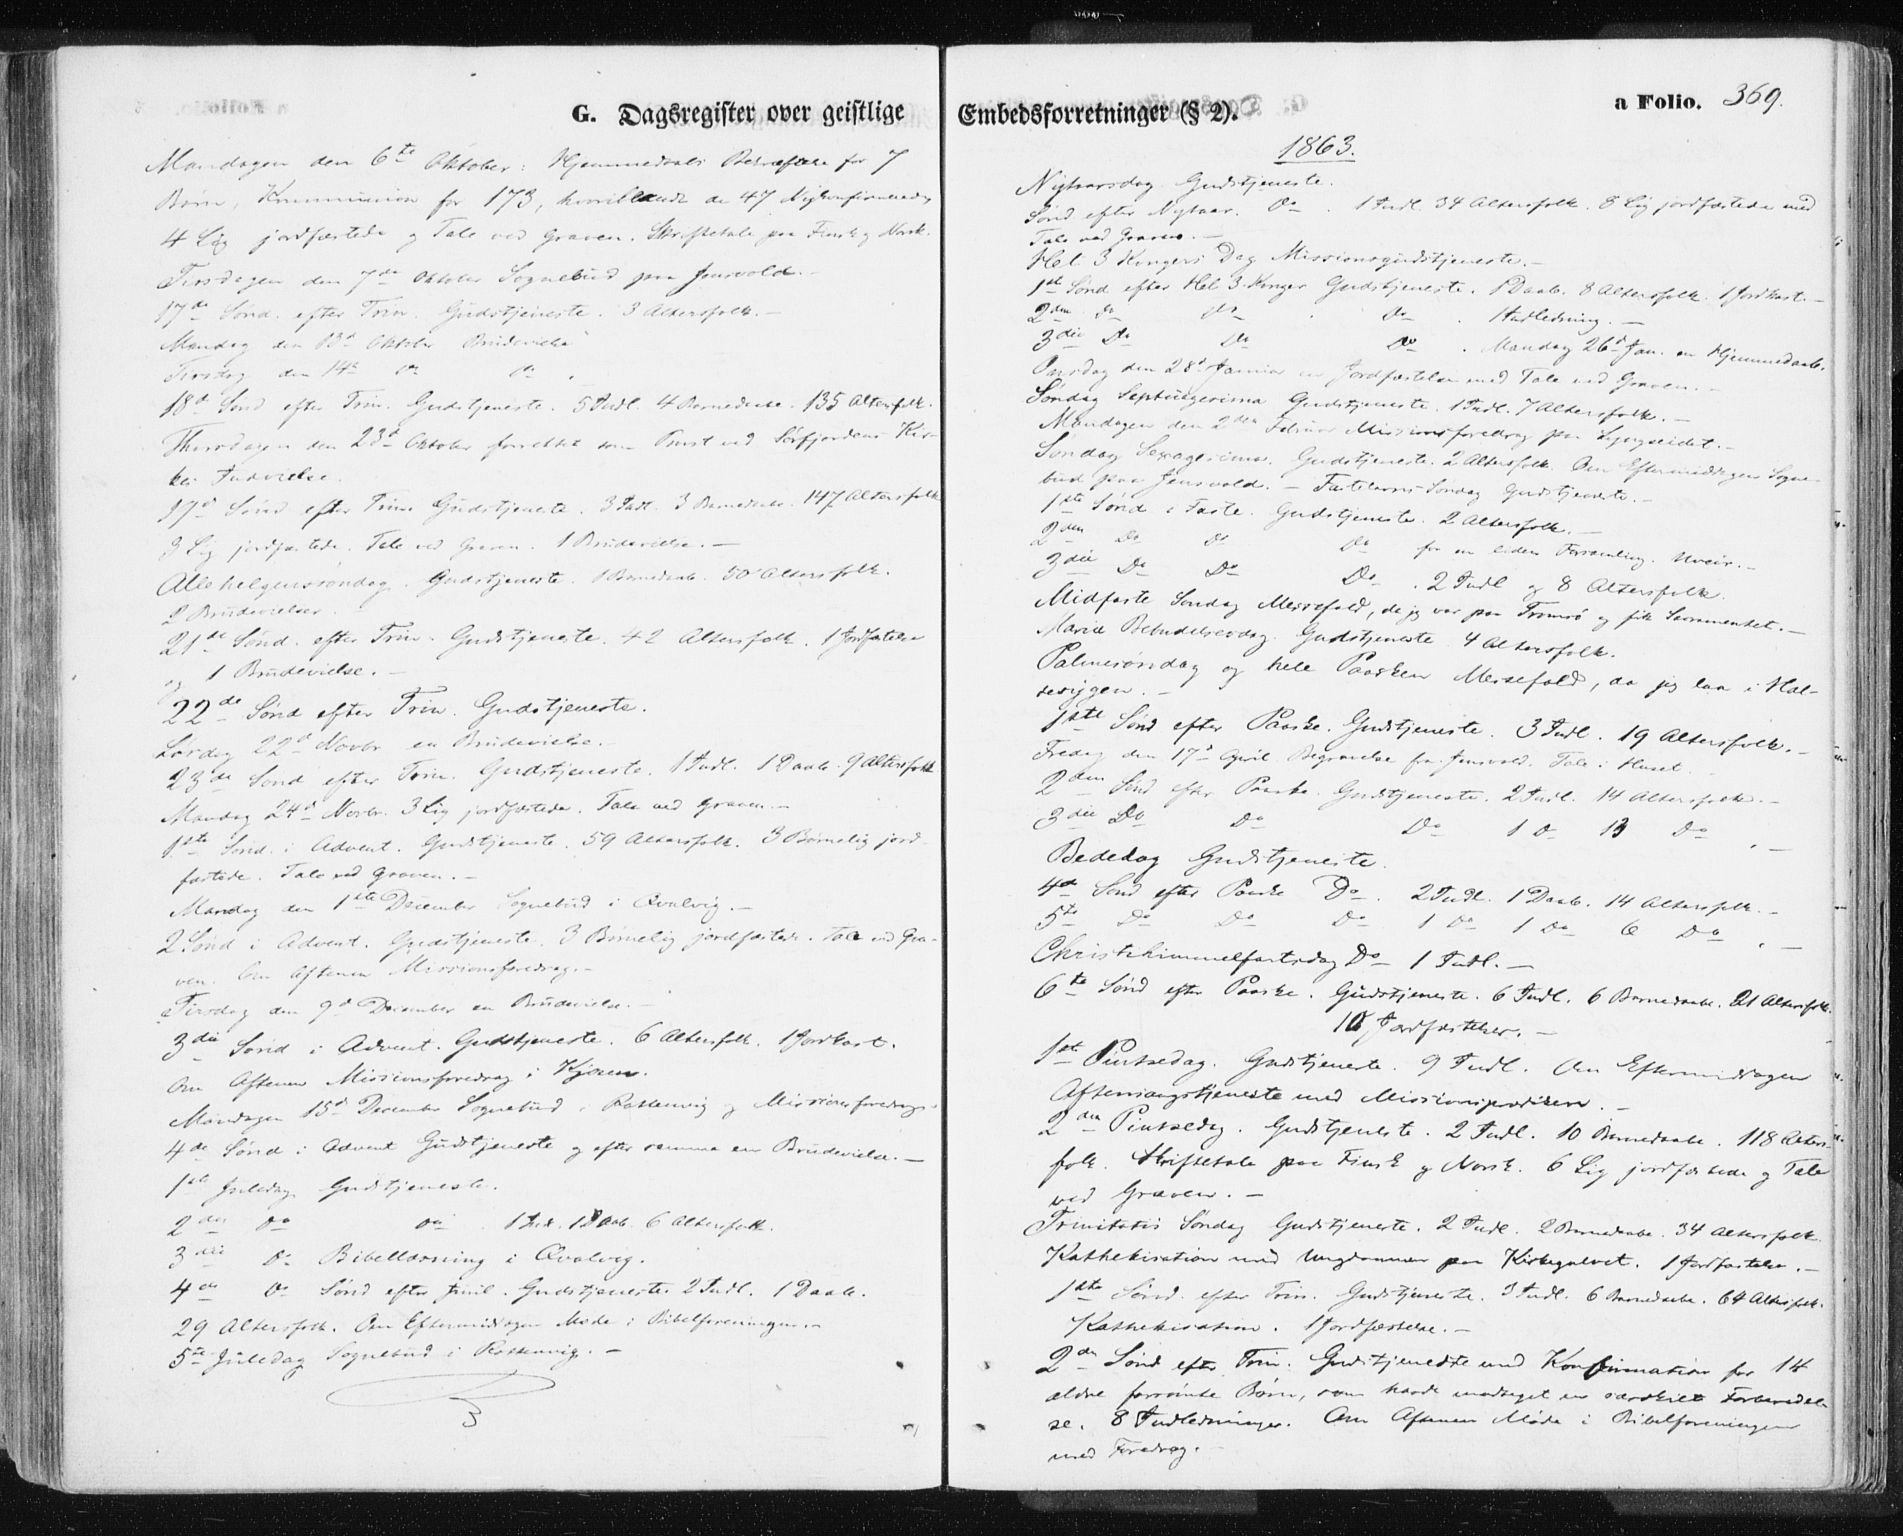 G. Dagsregister over geistlige
Mandagen den 6te Oktober: Hjemmedaabs Bekræftelse for 7
Børn, Kommunion for 173, hvoriblandt de 47 Nykonfirmerede,
4 Lig jordfæstede og Tale ved Graven. Skriftetale paa Finsk og Norsk.
Tirsdagen den 7de Oktober Sognebud paa Jensvold.-
17de Sønd. efter Trin. Gudstjeneste. 3 Altersfolk.-
Mandag den 13d Oktober Brudevielse
Tirsdag den 14d Do Do .
18d Sønd efter Trin. Gudstjeneste. 5 Indl. 4 Barnedaabe. 135 Altersfolk.
Thorsdagen den 23d Oktober forrettet som Provst ved Sørfjordens Kir-
kes Indvielse.
17d Sønd efter Trin. Gudstjeneste. 3 Indl. 3 Barnedaabe. 147 Altersfolk
3 Lig jordfæstede. Tale ved Graven. 1 Brudevielse.-
Allehelgenssøndag. Gudstjeneste. 1 Barnedaab. 50 Altersfolk.
2 Brudevielser.
21de Sønd. efter Trin. Gudstjeneste. 42 Altersfolk. 1 Jordfæstelse
og 1 Brudevielse.-
22de Sønd efter Trin. Gudstjeneste.
Lørdag 22d Novbr en Brudevielse.-
23de Sønd efter Trin. Gudstjeneste. 1 Indl. 1 Daab. 9 Altersfolk
Mandag 24d Novbr. 3 Lig jordfæstede. Tale ved Graven.-
1ste Sønd. i Advent. Gudstjeneste. 59 Altersfolk. 3 Børnelig jord-
fæstede. Tale ved Graven.-
Mandag den 1ste December Sognebud i Qvalvig.-
2. Sønd i Advent. Gudstjeneste. 3 Børnelig jordfæstede. Tale ved Gra-
ven. Om Aftenen Missionsforedrag.-
Tirsdag den 9d December en Brudevielse.-
3die Sønd i Advent. Gudstjeneste. 6 Altersfolk. 1 Jordkast.
Om Aftenen Missionsforedrag i Kjosen.
Mandagen 15d December Sognebud i Rottenvig og Missionsforedrag.
4de Sønd i Advent Gudstjeneste og efter samme en Brudevielse.-
1ste Juledag Gudstjeneste.
2den Do Do . 1 Indl. 1 Daab. 6 Altersfolk.
3die Do Bibellæsning i Qvalvig.
4de Do Sønd efter Juul. Gudstjeneste. 2 Indl. 1 Daab.
29 Altersfolk. Om Eftermiddagen Møde i Bibelforeningen.-
5te Juledag Sognebud i Rottenvig.-
Embedsforretninger (§ 2).
a Folio. 369.
1863.
Nytaarsdag Gudstjeneste.
Sønd efter Nytaar. Do . 1 Indl. 34 Altersfolk. 8 Lig jordfæstede med
Tale ved Graven.-
Hel. 3 Kongers Dag Missionsgudstjeneste.-
1ste Sønd efter Hel. 3 Konger Gudstjeneste. 1 Daab. 8 Altersfolk. 1 Jordkast.-
2den Do Do . Do . Indledning.-
3die Do Do Do . Mandag 26d Jan. en Hjemmedaab.
Onsdag den 28d Januar en Jordfæstelse med Tale ved Graven.-
Søndag Septuagesima Gudstjeneste. 1 Indl. 7 Altersfolk.-
Mandagen den 2den Februar Missionsforedrag paa Lyngseidet.-
Søndag Sexagesima. Gudstjeneste. 2 Altersfolk. Om Eftermiddagen Sogne-
bud paa Jensvold.- Fastelavns-Søndag Gudstjeneste.-
1ste Sønd i Faste. Gudstjeneste. 2 Altersfolk.-
2den Do Do Do for en liden Forsamling. Uveir.-
3die Do Do Do . 2 Indl og 8 Altersfolk.
Midfaste Søndag Messefald, da jeg var paa Tromsø og fik Sacramentet.-
Mariæ Bebudelsesdag. Gudstjeneste 4 Altersfolk.
Palmesøndag og hele Paasken Messefald, da jeg laa i Hal-
sesygen.-
1ste Sønd efter Paaske. Gudstjeneste. 3 Indl. 19 Altersfolk.-
Fredag den 17d April Begravelse fra Jensvold. Tale i Huset.
2den Sønd efter Paaske. Gudstjeneste. 2 Indl. 14 Altersfolk.-
3die Do Do Do 1 Do 13 Do .-
Bededag Gudstjeneste.
4de Sønd efter Paaske Do . 2 Indl. 1 Daab. 14 Altersfolk.-
5te Do Do Do 1 Do 1 Do 6 Do .-
Christi himmelfartsdag Do 1 Indl.-
6te Sønd efter Paaske. Gudstjeneste. 6 Indl. 6 Barnedaabe. 21 Altersfolk.
10 Jordfæstelser.-
1ste Pintsedag. Gudstjeneste. 9 Indl. Om Eftermiddagen
Aftensangstjeneste med Missionsprædiken.-
2den Pintsedag. Gudstjeneste. 2 Indl. 10 Barnedaabe. 118 Alters-
folk. Skriftetale paa Finsk og Norsk. 6 Lig jordfæstede og Tale
ved Graven.-
Trinitatis Søndag Gudstjeneste. 2 Indl. 2 Barnedaabe. 34 Altersfolk.
Kathekisation med Ungdommen paa Kirkegulvet. 1 Jordfæstelse.-
1ste Sønd. efter Trin. Gudstjeneste. 3 Indl. 6 Barnedaabe. 64 Altersfolk.
Kathekisation. 1 Jordfæstelse.-
2den Sønd efter Trin. Gudstjeneste med Konfirmation for 14
ældre forsømte Børn, som havde modtaget en særskilt Forberedel-
se. 8 Indledninger. Om Aftenen Møde i Bibelforeningen
med Foredrag.-